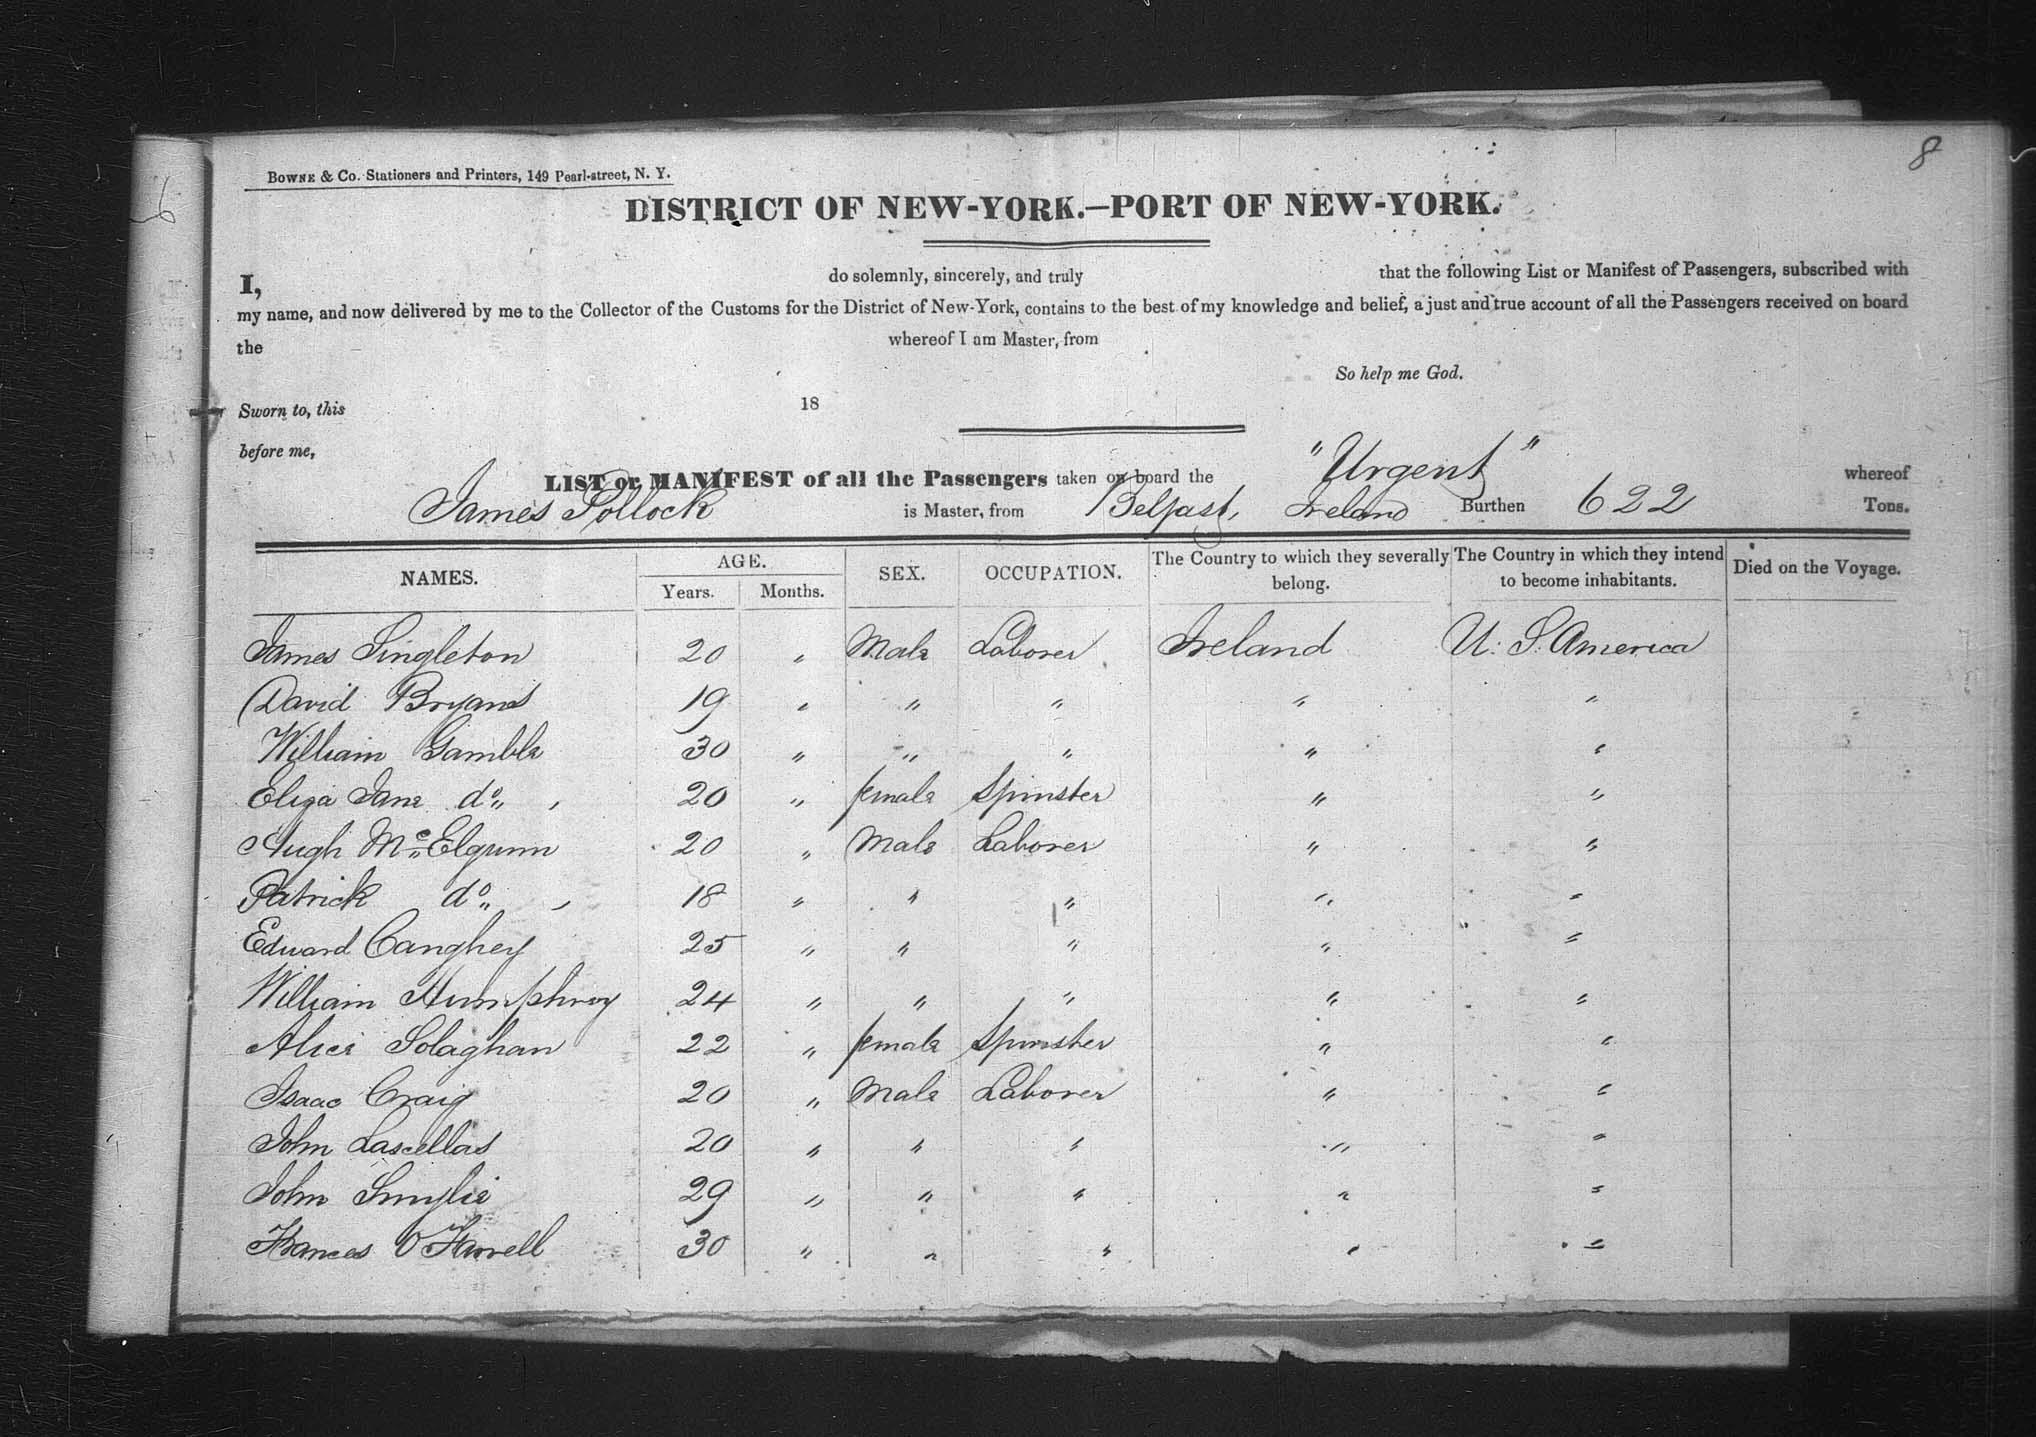 8
6
BOWNE & CO. Stationers and Printers, 149 Pearl-street, N. Y.
DISTRICT OF NEW-YORK.—PORT OF NEW-YORK.
I, do solemnly, sincerely, and truly that the following List or Manifest of Passengers, subscribed with
my name, and now delivered by me to the Collector of the Customs for the District of New-York, contains to the best of my knowledge and belief, a just and true account of all the Passengers received on board
the whereof I am Master, from
So help me God.
Sworn to, this 18
before me,
LIST or MANIFEST of all the Passengers taken on board the "Urgent" whereof
James Pollock is Master, from Belfast, Ireland Burthen 622 Tons.
NAMES. AGE. Years. Months. SEX. OCCUPATION. The Country to which they severally belong. The Country in which they intend to become inhabitants. Died on the Voyage.
James Singleton 20 " Male Laborer Ireland U. S. America
David Bryans 19 " " " " "
William Gamble 30 " " " " "
Eliza Jane do " 20 " female Spinster " "
Hugh McElgunn 20 " Male Laborer " "
Patrick do " 18 " " " " "
Edward Canghey 25 " " " " "
William Humphrey 24 " " " " "
Alice Solaghan 22 " female Spinster " "
Isaac Craig 20 " Male Laborer " "
John Lascellas 20 " " " " "
John Smylie 29 " " " " "
Frances O'Farrell 30 " " " " "